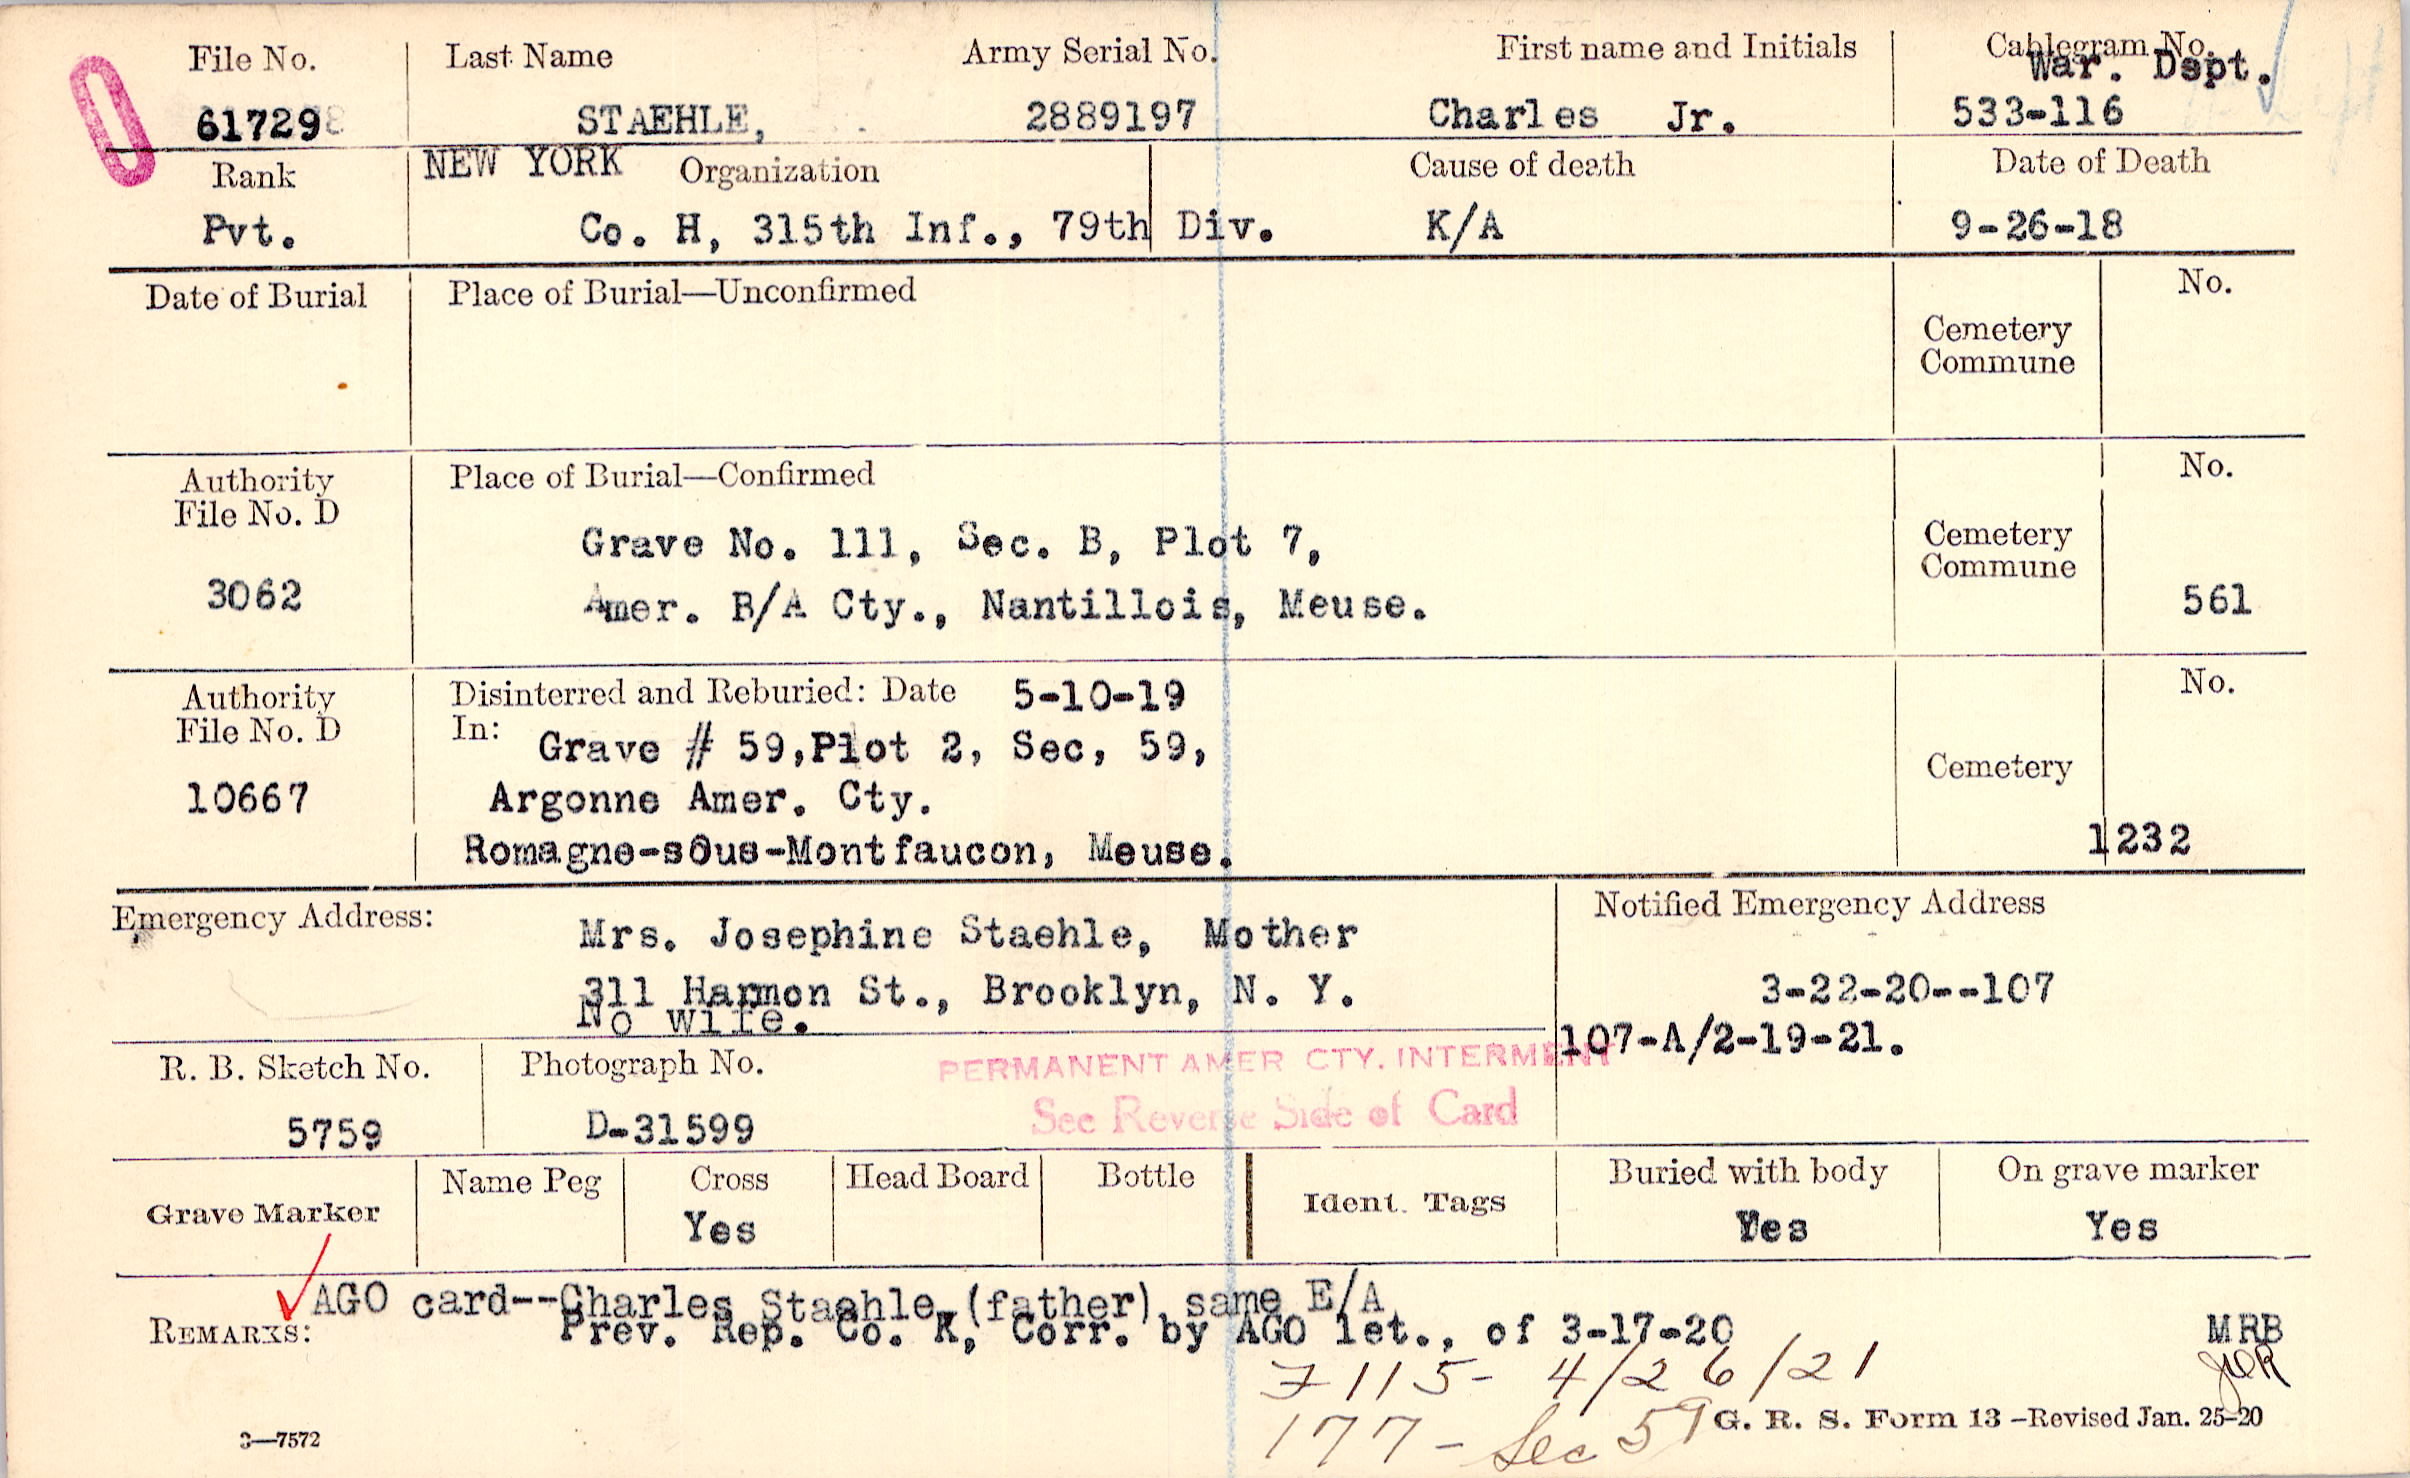 File No. Last Name Army Serial No. First name and Initials Cablegram No.
War. Dept.
61729 STAEHLE, 2889197 Charles Jr. 533-116
Rank NEW YORK Organization Cause of death Date of Death
Pvt. Co. H, 315th Inf., 79th Div. K/A 9-26-18
Date of Burial Place of Burial—Unconfirmed No.
Cemetery
Commune
Authority Place of Burial—Confirmed No.
File No. D
Grave No. 111, Sec. B, Plot 7, Cemetery
Commune
3062 Amer. B/A Cty., Nantillois, Meuse. 561
Authority Disinterred and Reburied: Date 5-10-19 No.
File No. D In: Grave # 59,Plot 2, Sec, 59,
Cemetery
10667 Argonne Amer. Cty.
Romagne-sous-Montfaucon, Meuse. 1232
Emergency Address: Mrs. Josephine Staehle, Mother Notified Emergency Address
311 Harmon St., Brooklyn, N. Y. 3-22-20--107
No wife.
107-A/2-19-21.
R. B. Sketch No. Photograph No. PERMANENT AMER CTY. INTERMENT
5759 D-31599 See Reverse Side of Card
Grave Marker Name Peg Cross Head Board Bottle Ident. Tags Buried with body On grave marker
Yes Yes Yes
AGO card--Charles Staehle, (father) same E/A
REMARKS: Prev. Rep. Co. K, Corr. by AGO let., of 3-17-20 MRB
7115- 4/26/21
177- Sec 59 G. R. S. Form 13 —Revised Jan. 25-20
3—7572